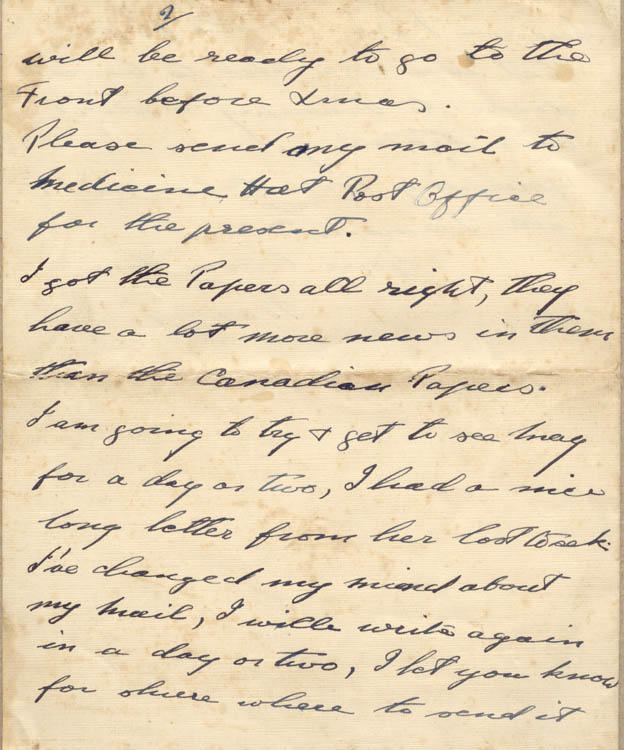 2
will be ready to go to the
Front before Xmas.
Please send my mail to
Medicine Hat Post Office
for the present.
I got the Papers all right, they
have a lot more news in them
than the Canadian Papers.
I am going to try & get to see May
for a day or two, I had a nice
long letter from her last Week.
I've changed my mind about
my mail, I will write again
in a day or two, I let you know
for shure where to send it